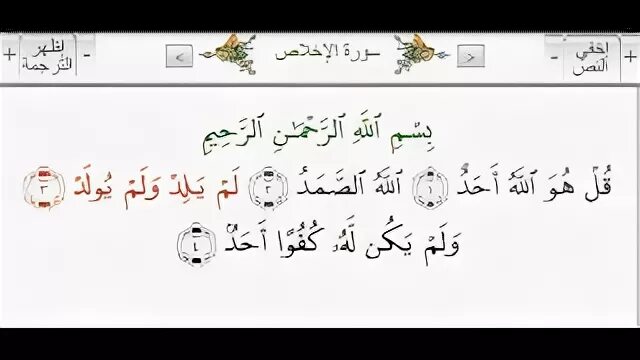 + اظهر الترجمة - < سورة الإخلاص > - اخفي النص +
بِسْمِ ٱللَّهِ ٱلرَّحْمَٰنِ ٱلرَّحِيمِ
قُلْ هُوَ ٱللَّهُ أَحَدٌ ١ ٱللَّهُ ٱلصَّمَدُ ٢ لَمْ يَلِدْ وَلَمْ يُولَدْ ٣
وَلَمْ يَكُن لَّهُۥ كُفُوًا أَحَدٌۢ ٤